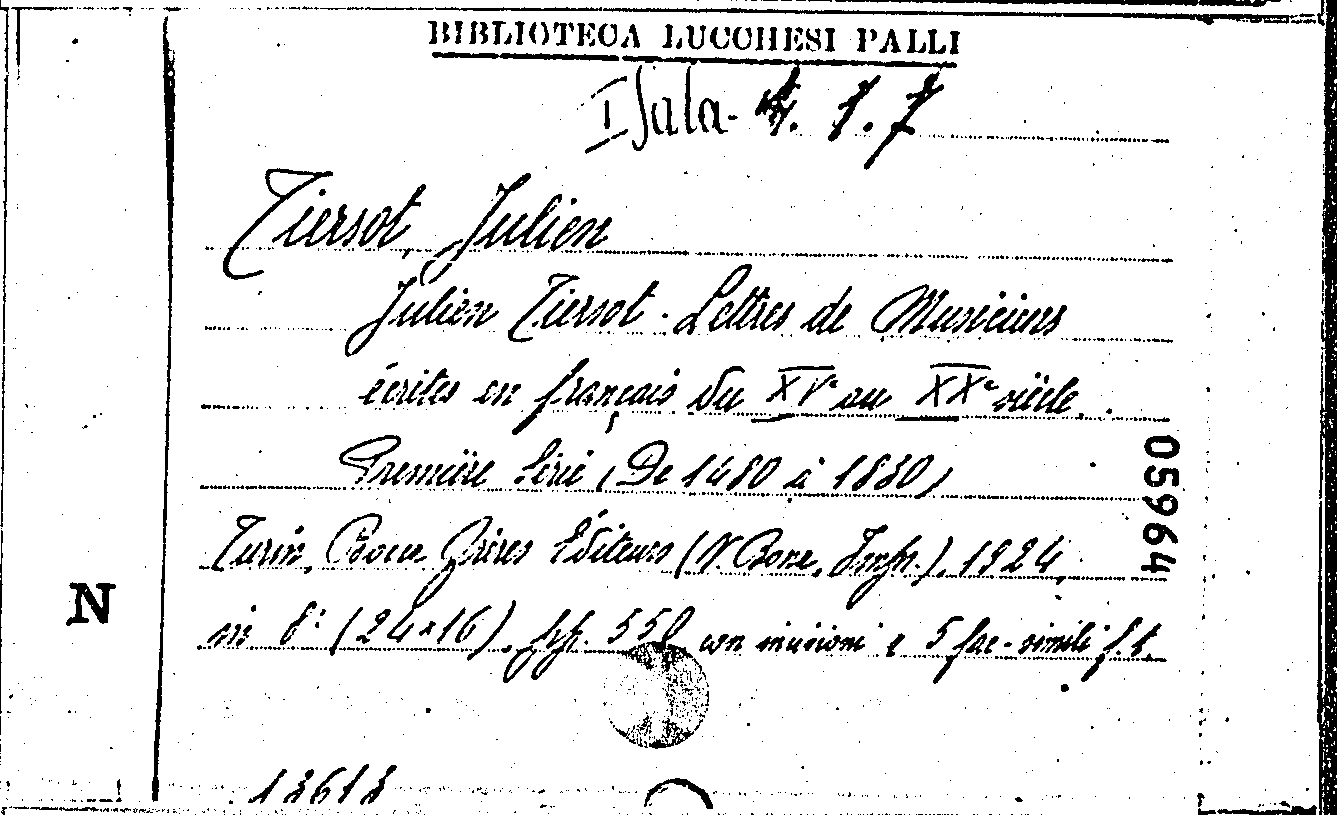 BIBLIOTECA LUCCHESI PALLI
I Sala. 4. 7. 7
Tiersot, Julien
Julien Tiersot. Lettres de Musiciens
écrites en français du XVe au XXe siècle.
Première Série (De 1480 à 1830)
Turin, Bocca Frères Éditeurs (V. Bona, Imp.), 1924,
in 8° (24x16), pp. 55 con incisioni e 5 fac-simili f. t.
05964
N